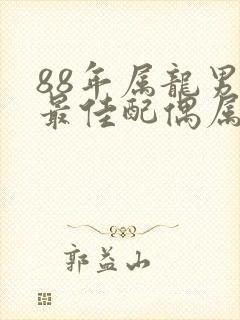 88年属龍男
最佳配偶属
郭益山